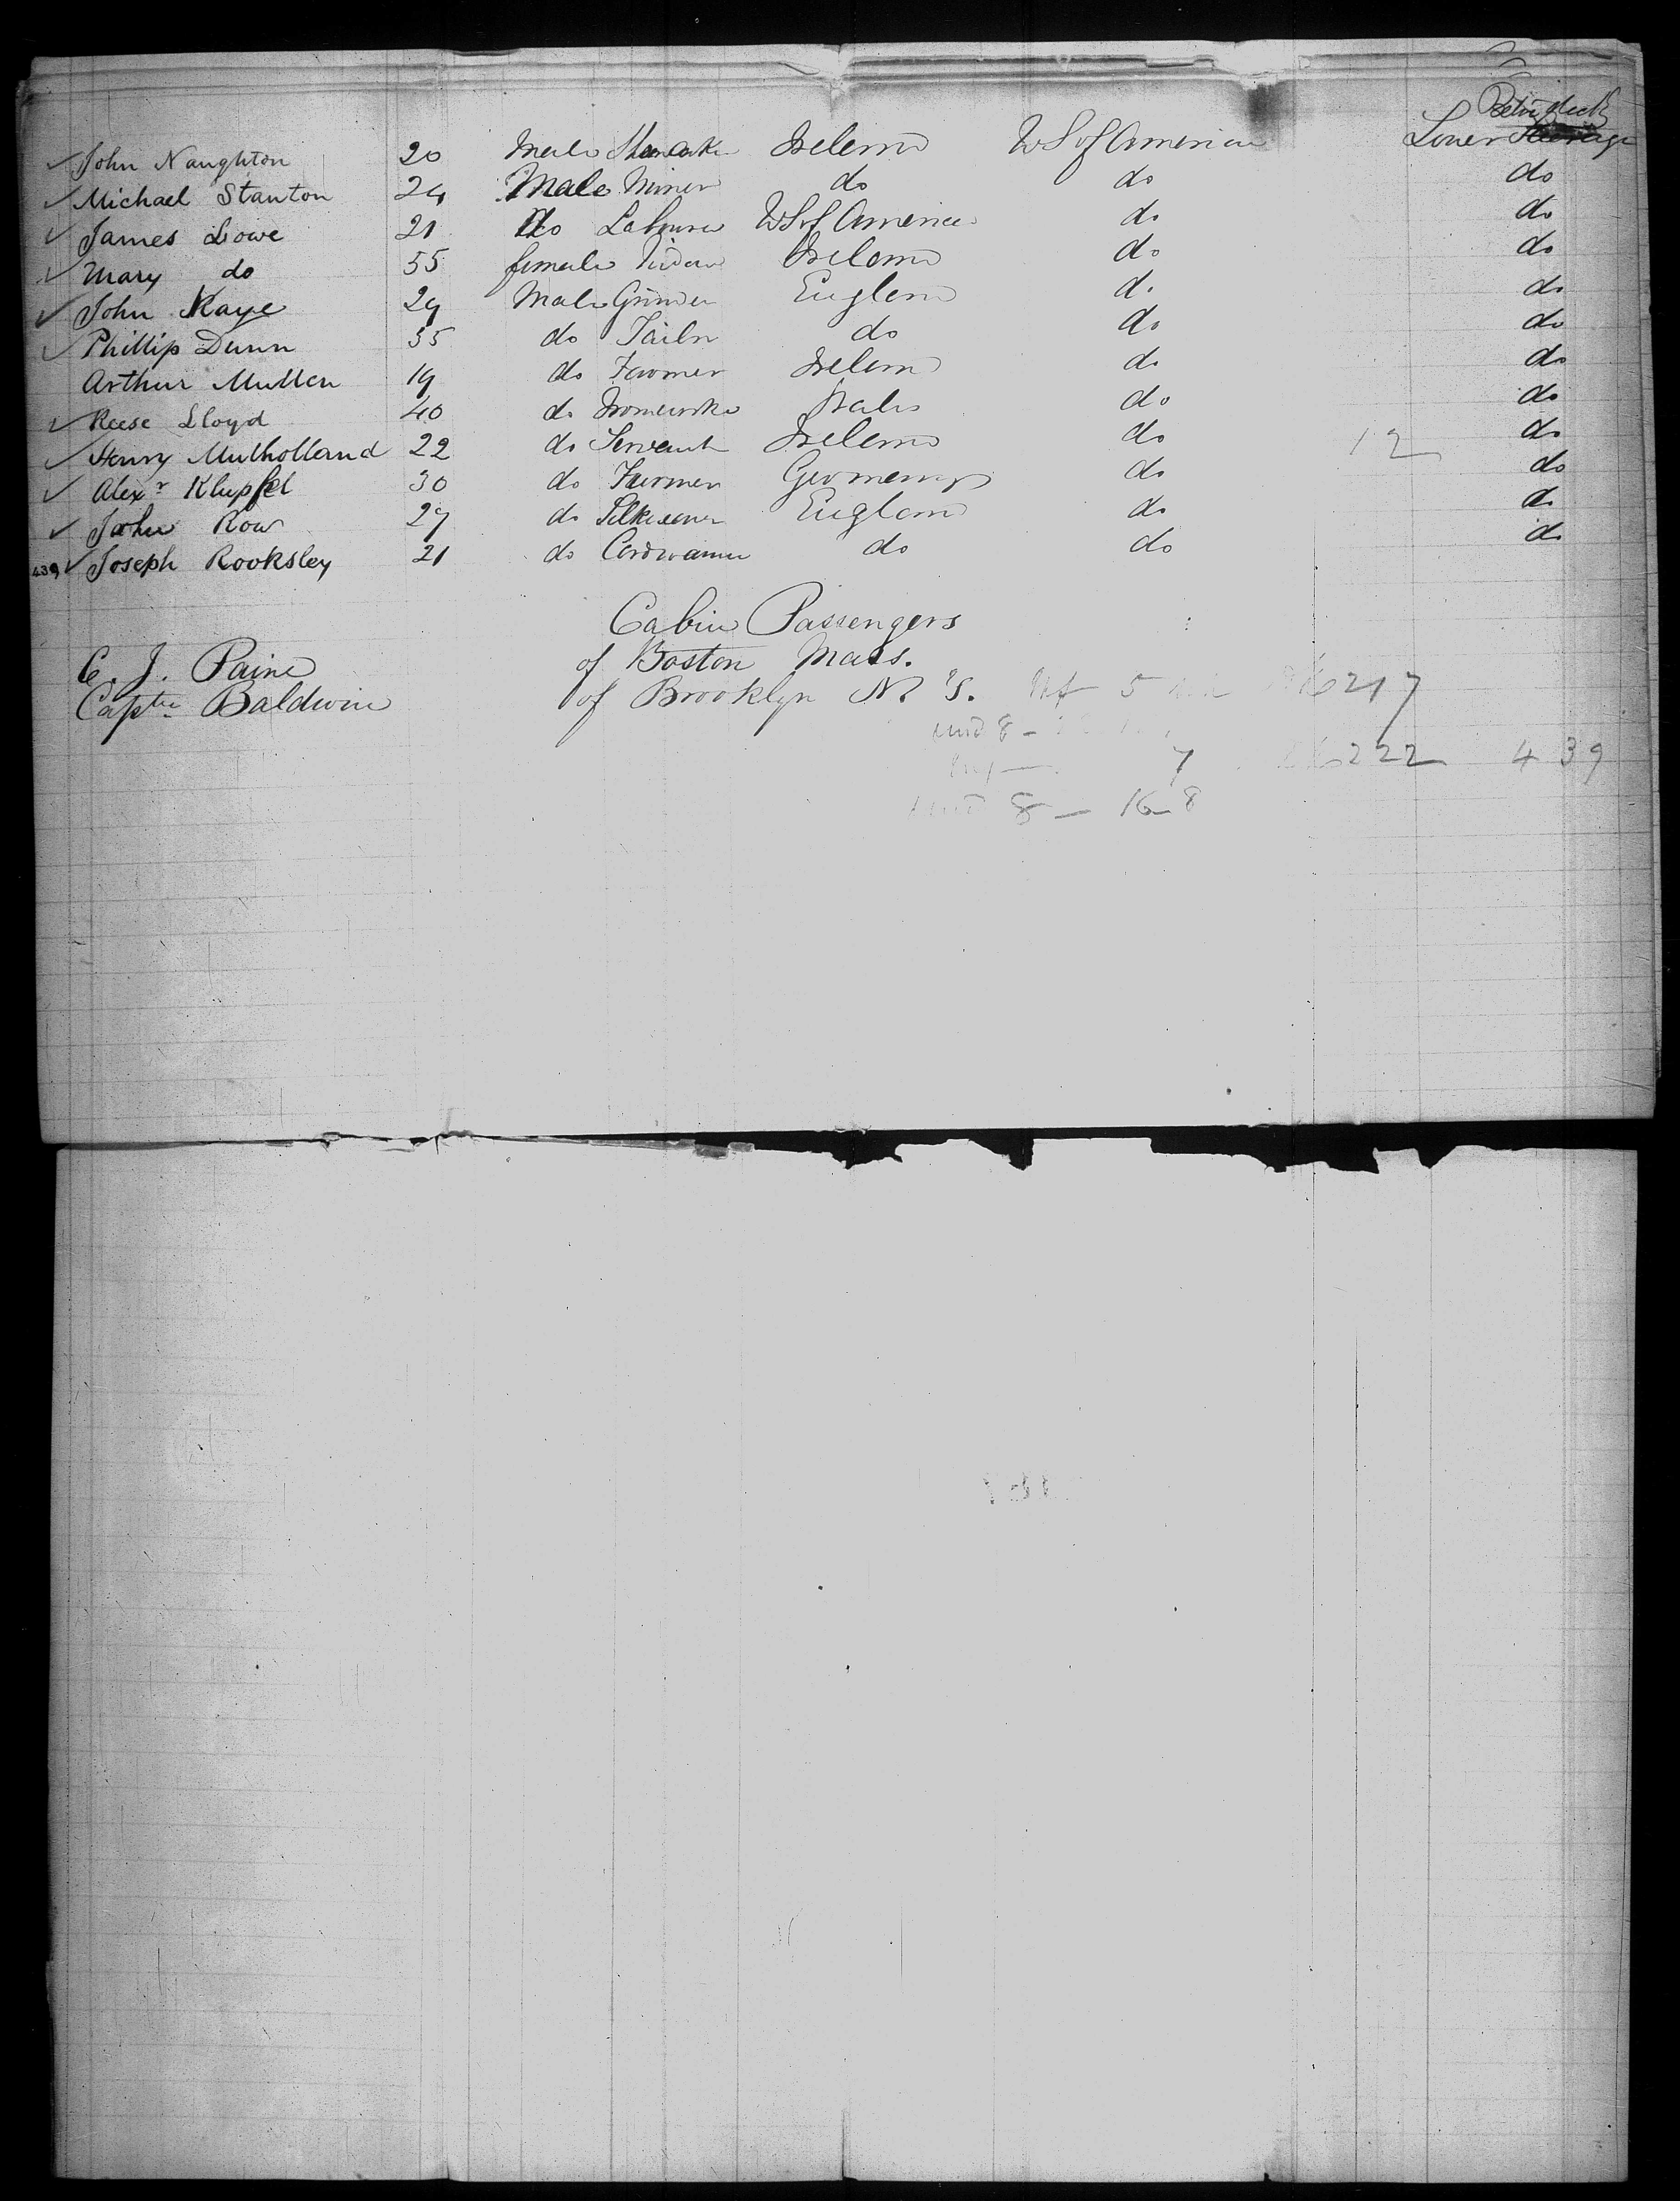 Betw. deck
✓ John Naughton 20 Male Shoemaker Ireland U S of America Lower Steerage
✓ Michael Stanton 24 Male Miner do do do
✓ James Lowe 21 do Labourer U S of America do do
✓ Mary do 55 female Widow Ireland do do
✓ John Kaye 29 Male Grinder England do do
✓ Phillip Dunn 35 do Tailor do do do
Arthur Mullen 19 do Farmer Ireland do do
✓ Reese Lloyd 40 do Wales do do
✓ Henry Mulholland 22 do Servant Ireland do 12 do
✓ Alexr Klupfel 30 do Farmer Germany do do
✓ John Row 27 do England do do
439 ✓ Joseph Rooksley 21 do Cordwainer do do do
Cabin Passengers
C. J. Paine of Boston Mass.
Captn Baldwin of Brooklyn N. Y. 5 217
und 8 -
7 222 439
und 8 - 16 - 8